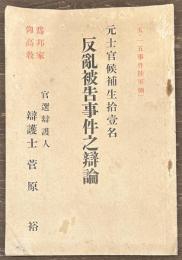 五・一五事件陸軍側
元士官候補生拾壹名
反亂被告事件之辯論
官選辯護人
辯護士 菅原裕
爲邦家
御高教